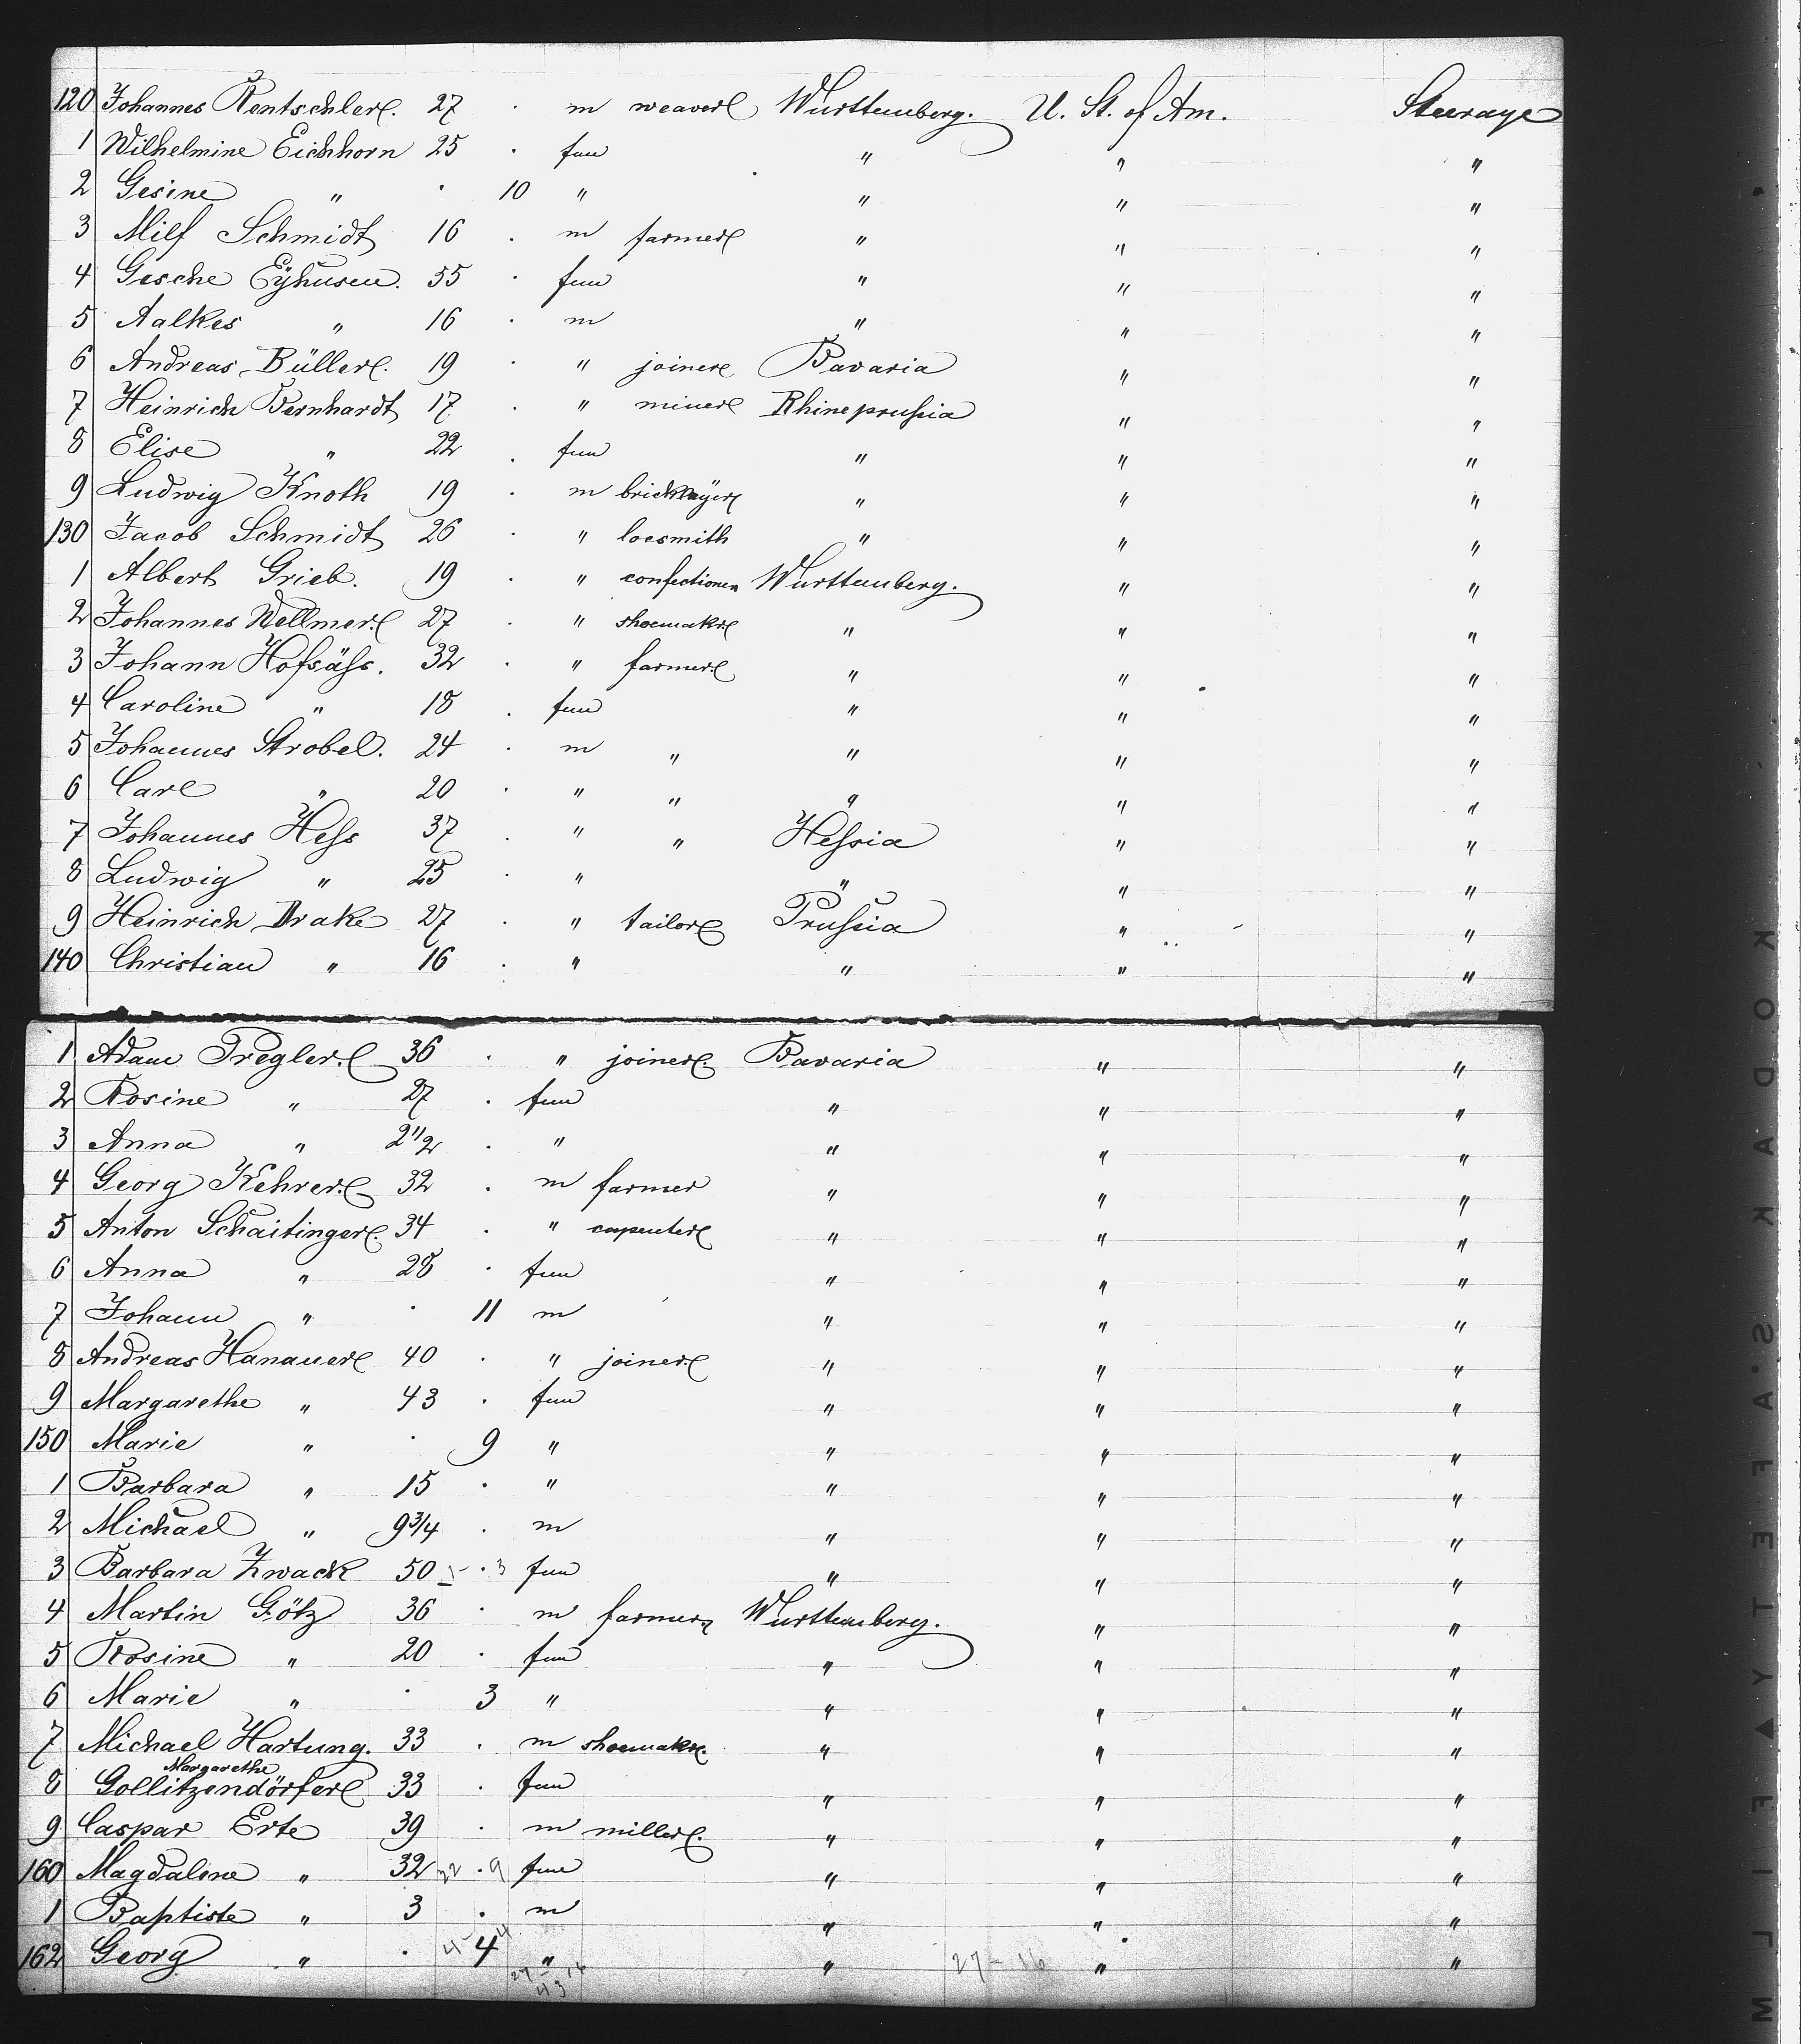 120 Johannes Rentschler. 27 . m weaver Wurttemberg. U. St. of Am. Steerage
1 Wilhelmine Eichhorn 25 . fem " " "
2 Gesine " . 10 " " " "
3 Milf Schmidt 16 . m farmer " " "
4 Gesche Eyhusen. 55 . fem " " "
5 Aalkes " 16 . m " " "
6 Andreas Büller. 19 . " joiner Bavaria " "
7 Heinrich Bernhardt 17 . " miner Rhineprussia " "
8 Elise " 22 . fem " " "
9 Ludwig Knoth 19 . m bricklayer " " "
130 Jacob Schmidt 26 . " locsmith " " "
1 Albert Grieb. 19 . " confectioner Wurttemberg. " "
2 Johannes Wellmer. 27 . " shoemaker " " "
3 Johann Hofsäss. 32 . " farmer. " " "
4 Caroline " 18 . fem " " "
5 Johannes Strobel. 24 . m " " " "
6 Carl " 20 . " " " " "
7 Johannes Hess 37 . " " Hessia " "
8 Ludwig " 25 . " " " "
9 Heinrich Drake 27 . " tailor Prussia " "
140 Christian " 16 . " " " "
1 Adam Tregler. 36 . " joiner. Bavaria " "
2 Rosine " 27 . fem " " "
3 Anna " 2 1/2 . " " " "
4 Georg Kehrer. 32 . m farmer " " "
5 Anton Schaitinger. 34 . " carpenter " " "
6 Anna " 28 . fem " " "
7 Johann " . 11 m " " "
8 Andreas Hanauer 40 . " joiner. " " "
9 Margarethe " 43 . fem " " "
150 Marie " . 9 " " " "
1 Barbara " 15 . " " " "
2 Michael " 9 3/4 . m " " "
3 Barbara Zwack 50 . 3 fem " " "
4 Martin Götz 36 . m farmer Wurttemberg. " "
5 Rosine " 20 . fem " " "
6 Marie " . 3 " " " "
7 Michael Hartung. 33 . m shoemaker. " " "
Margarethe
8 Gollitzendörfer 33 . fem " " "
9 Caspar Erte 39 . m miller. " " "
160 Magdalene " 32 . 9 fem " " "
1 Baptiste " 3 . m " " "
162 Georg " . 4 " " 27 - 16 " "
KODAK SAFETY FILM